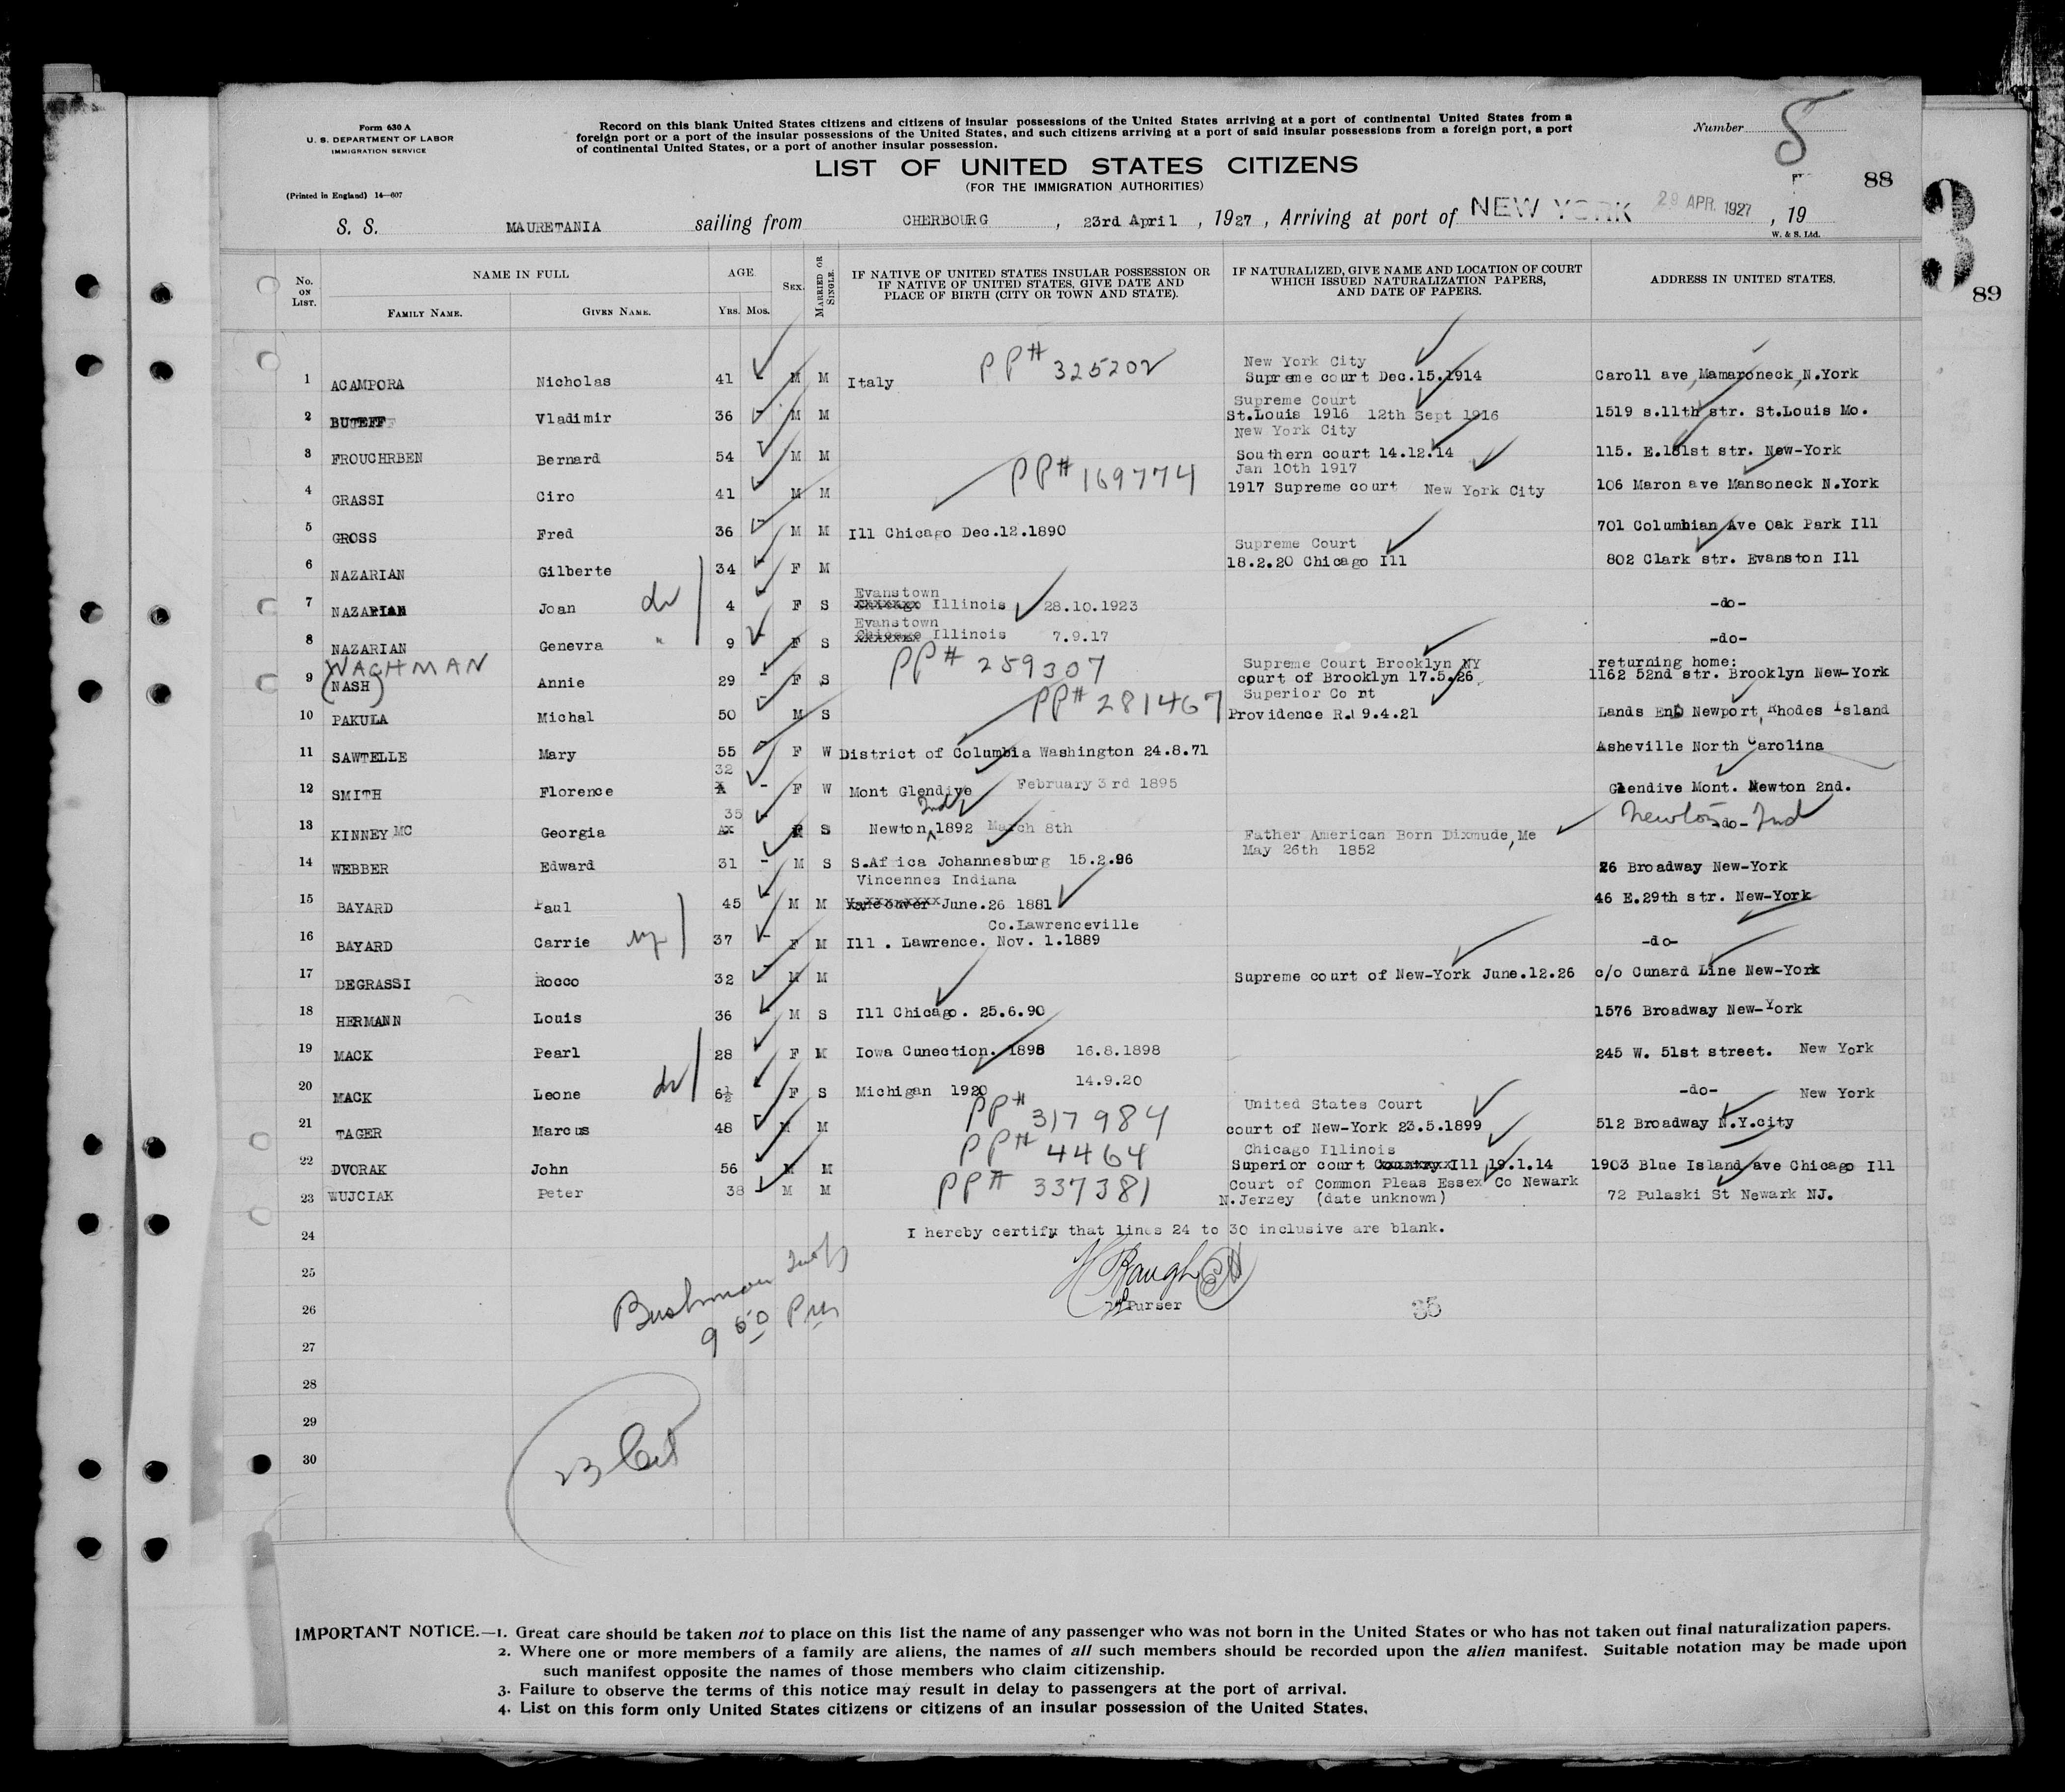 Form 630 A
U. S. DEPARTMENT OF LABOR
IMMIGRATION SERVICE
(Printed in England) 14—607
Record on this blank United States citizens and citizens of insular possessions of the United States arriving at a port of continental United States from a
foreign port or a port of the insular possessions of the United States, and such citizens arriving at a port of said insular possessions from a foreign port, a port
of continental United States, or a port of another insular possession.
Number 5
LIST OF UNITED STATES CITIZENS
(FOR THE IMMIGRATION AUTHORITIES)
88
89
S. S. MAURETANIA sailing from CHERBOURG, 23rd April, 1927, Arriving at port of NEW YORK 29 APR. 1927, 19
W. & S. Ltd.
No. ON LIST. NAME IN FULL AGE SEX. MARRIED OR SINGLE. IF NATIVE OF UNITED STATES INSULAR POSSESSION OR IF NATIVE OF UNITED STATES, GIVE DATE AND PLACE OF BIRTH (CITY OR TOWN AND STATE). IF NATURALIZED, GIVE NAME AND LOCATION OF COURT WHICH ISSUED NATURALIZATION PAPERS, AND DATE OF PAPERS. ADDRESS IN UNITED STATES.
FAMILY NAME. GIVEN NAME. YRS. MOS.
PP# 325202 New York City
1 ACAMPORA Nicholas 41 - M M Italy Supreme court Dec.15.1914 Caroll ave, Mamaroneck, N.York
Supreme Court
2 BUTEFF Vladimir 36 - M M St.Louis 1916 12th Sept 1916 1519 s.11th str. St.Louis Mo.
New York City
3 FROUCHRBEN Bernard 54 - M M Southern court 14.12.14 115. E.181st str. New-York
PP# 169774 Jan 10th 1917
4 GRASSI Ciro 41 - M M 1917 Supreme court New York City 106 Maron ave Mansoneck N.York
5 GROSS Fred 36 - M M Ill Chicago Dec.12.1890 701 Columbian Ave Oak Park Ill
Supreme Court
6 NAZARIAN Gilberte 34 - F M 18.2.20 Chicago Ill 802 Clark str. Evanston Ill
Evanstown
7 NAZARIAN Joan 4 - F S Chicago Illinois 28.10.1923 -do-
Evanstown
8 NAZARIAN Genevra " 9 - F S Chicago Illinois 7.9.17 -do-
WACHMAN PP# 259307 Supreme Court Brooklyn NY returning home:
9 (NASH) Annie 29 - F S court of Brooklyn 17.5.26. 1162 52nd str. Brooklyn New-York
PP# 281467 Superior Co rt
10 PAKULA Michal 50 - M S Providence R.I 9.4.21 Lands End Newport, Rhodes Island
11 SAWTELLE Mary 55 - F W District of Columbia Washington 24.8.71 Asheville North Carolina
32
12 SMITH Florence - F W Mont Glendive February 3rd 1895 Glendive Mont. Newton 2nd.
35 Ind Newton Ind
13 KINNEY MC Georgia F S Newton 1892 March 8th Father American Born Dixmude, Me -do-
May 26th 1852
14 WEBBER Edward 31 - M S S.Af ica Johannesburg 15.2.96 26 Broadway New-York
Vincennes Indiana
15 BAYARD Paul 45 M M Vancouver June.26 1881 46 E.29th str. New-York
Co.Lawrenceville
16 BAYARD Carrie 37 - F M Ill . Lawrence. Nov. 1.1889 -do-
17 DEGRASSI Rocco 32 - M M Supreme court of New-York June.12.26 c/o Cunard Line New-York
18 HERMANN Louis 36 - M S Ill Chicago. 25.6.90 1576 Broadway New-York
19 MACK Pearl 28 F M Iowa Cunection. 1898 16.8.1898 245 W. 51st street. New York
14.9.20
20 MACK Leone 6½ F S Michigan 1920 -do- New York
PP# 317984 United States Court
21 TAGER Marcus 48 - M M court of New-York 23.5.1899 512 Broadway N.Y.city
PP# 4464 Chicago Illinois
22 DVORAK John 56 M M Superior court Ill 19.1.14 1903 Blue Island ave Chicago Ill
PP# 337381 Court of Common Pleas Essex Co Newark
23 WUJCIAK Peter 38 - M M N.Jerzey (date unknown) 72 Pulaski St Newark NJ.
24 I hereby certify that lines 24 to 30 inclusive are blank.
25
26 Purser 35
9 50 PM
27
28
29
23 Cit
30
IMPORTANT NOTICE.—1. Great care should be taken not to place on this list the name of any passenger who was not born in the United States or who has not taken out final naturalization papers.
2. Where one or more members of a family are aliens, the names of all such members should be recorded upon the alien manifest. Suitable notation may be made upon
such manifest opposite the names of those members who claim citizenship.
3. Failure to observe the terms of this notice may result in delay to passengers at the port of arrival.
4. List on this form only United States citizens or citizens of an insular possession of the United States.